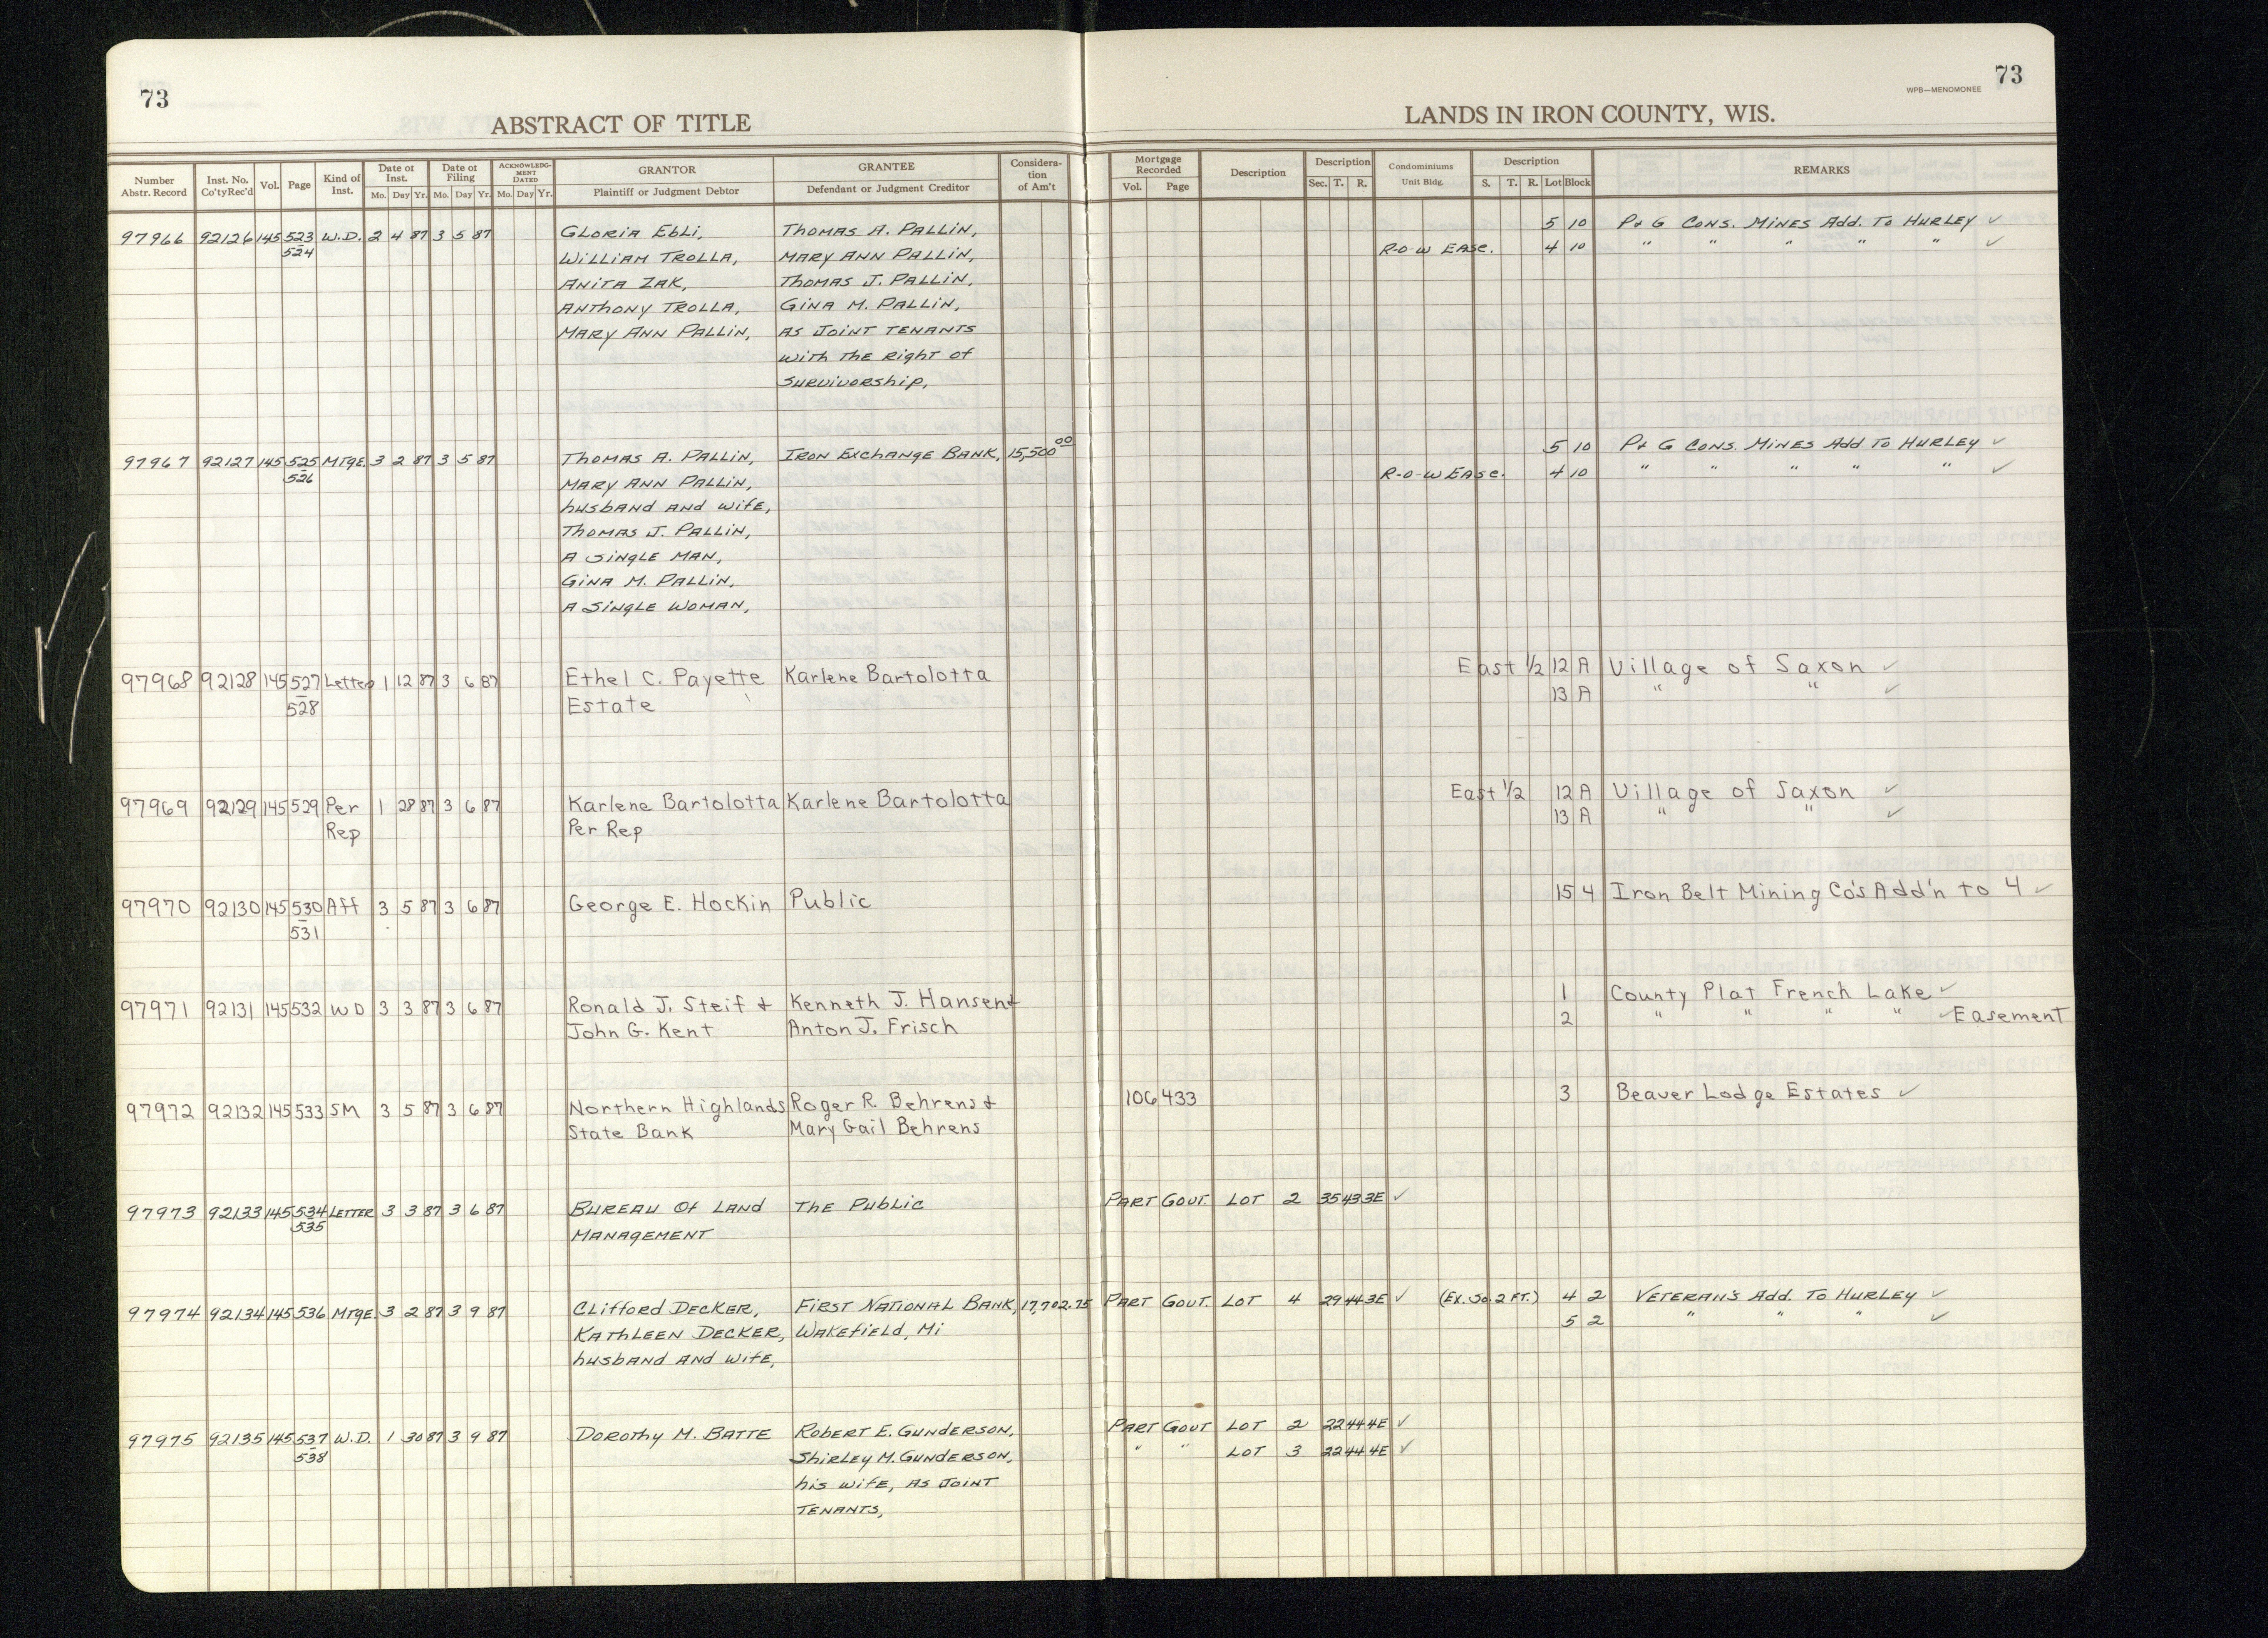 73
ABSTRACT OF TITLE
Number Abstr. Record | Inst. No. Co'ty Rec'd | Vol. | Page | Kind of Inst. | Date of Inst. Mo. Day Yr. | Date of Filing Mo. Day Yr. | ACKNOWLEDGMENT DATED Mo. Day Yr. | GRANTOR Plaintiff or Judgment Debtor | GRANTEE Defendant or Judgment Creditor | Consideration of Am't
73
WPB—MENOMONEE
LANDS IN IRON COUNTY, WIS.
Mortgage Recorded Vol. Page | Description | Description Sec. T. R. | Condominiums Unit Bldg. | Description S. T. R. Lot Block | REMARKS
97966 92126 145 523 W.D. 2 4 87 3 5 87 Gloria Ebli, Thomas A. Pallin, 5 10 P+ G Cons. Mines Add. To Hurley ✓
524 William Trolla, Mary Ann Pallin, R-O-W Ease. 4 10 " " " " " ✓
Anita Zak, Thomas J. Pallin,
Anthony Trolla, Gina M. Pallin,
Mary Ann Pallin, as Joint Tenants
with the right of
survivorship,
97967 92127 145 525 Mtge. 3 2 87 3 5 87 Thomas A. Pallin, Iron Exchange Bank, 15,500 00 5 10 P+ G Cons. Mines Add To Hurley ✓
526 Mary Ann Pallin, R-O-W Ease. 4 10 " " " " " ✓
husband and wife,
Thomas J. Pallin,
A single man,
Gina M. Pallin,
A single woman,
97968 92128 145 527 Letter 1 12 87 3 6 87 Ethel C. Payette Karlene Bartolotta East 1/2 12 A Village of Saxon ✓
528 Estate 13 A " " ✓
97969 92129 145 529 Per 1 28 87 3 6 87 Karlene Bartolotta Karlene Bartolotta East 1/2 12 A Village of Saxon ✓
Rep Per Rep 13 A " " ✓
97970 92130 145 530 Aff 3 5 87 3 6 87 George E. Hockin Public 15 4 Iron Belt Mining Co's Add'n to 4 ✓
531
97971 92131 145 532 WD 3 3 87 3 6 87 Ronald J. Steif + Kenneth J. Hansen + 1 County Plat French Lake ✓
John G. Kent Anton J. Frisch 2 " " " " ✓ Easement
97972 92132 145 533 SM 3 5 87 3 6 87 Northern Highlands Roger R. Behrens + 106 433 3 Beaver Lodge Estates ✓
State Bank Mary Gail Behrens
97973 92133 145 534 Letter 3 3 87 3 6 87 Bureau of Land The Public Part Govt. Lot 2 35 43 3E ✓
535 Management
97974 92134 145 536 Mtge. 3 2 87 3 9 87 Clifford Decker, First National Bank, 17,702.75 Part Govt. Lot 4 29 44 3E ✓ (Ex. So. 2 Ft.) 4 2 Veteran's Add. To Hurley ✓
Kathleen Decker, Wakefield, Mi 5 2 " " " ✓
husband and wife,
97975 92135 145 537 W.D. 1 30 87 3 9 87 Dorothy M. Batte Robert E. Gunderson, Part Govt Lot 2 22 44 4E ✓
538 Shirley M. Gunderson, " " Lot 3 22 44 4E ✓
his wife, as Joint
Tenants,